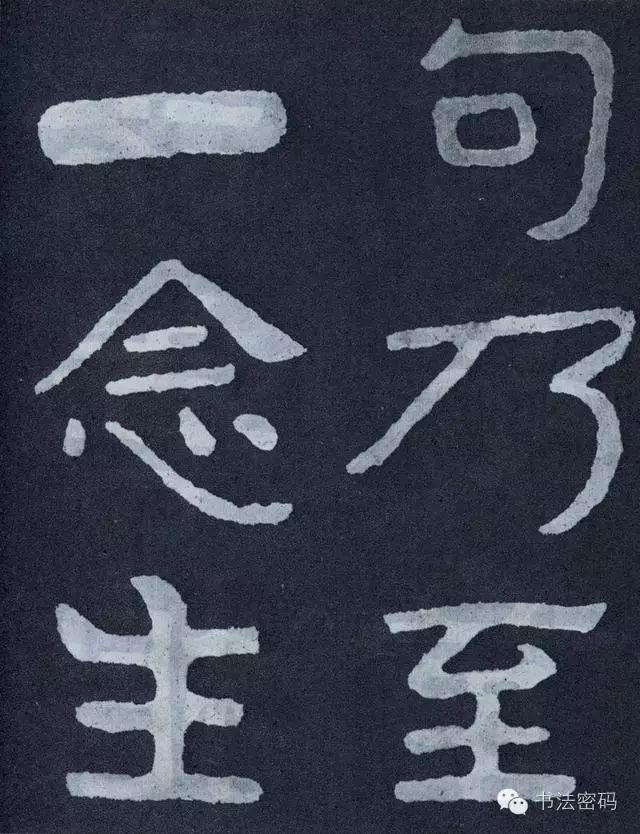 句乃至
一念生
书法密码